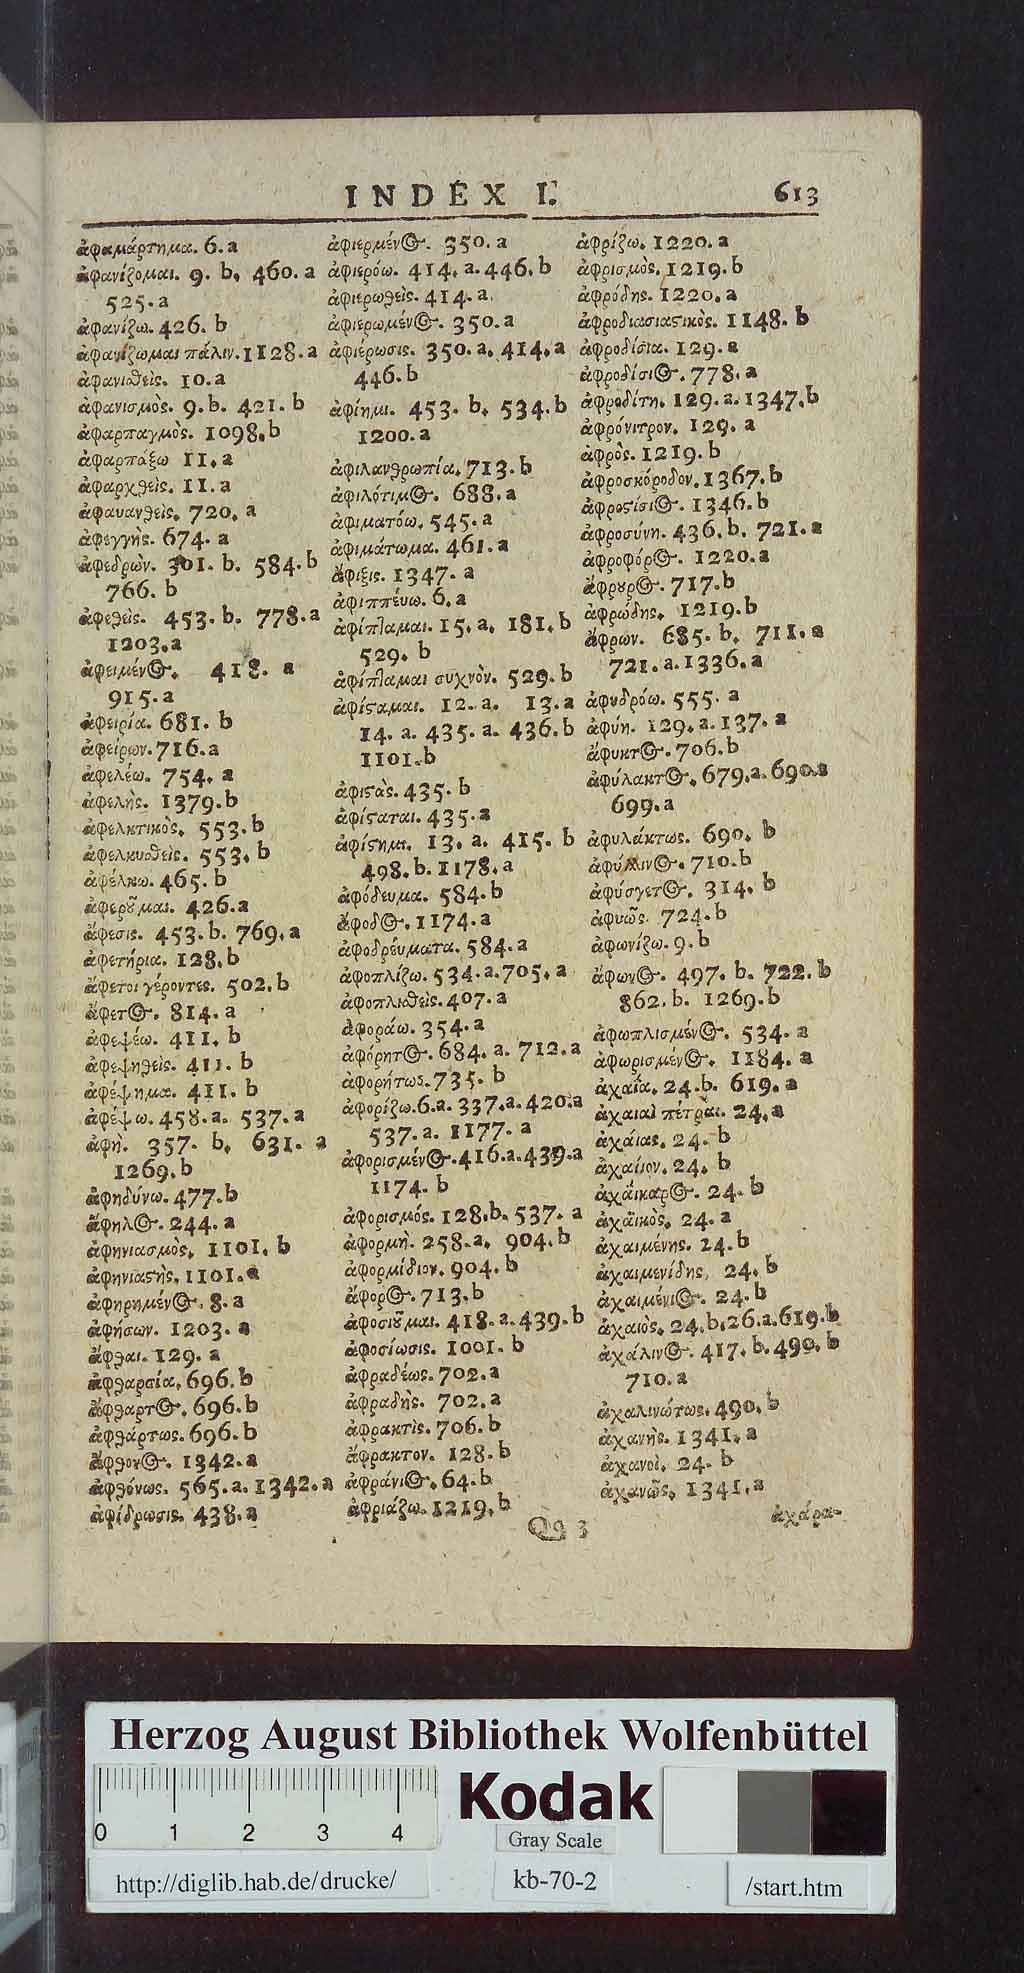 INDEX I.
613
ἀφαμάρτημα. 6.a
ἀφανίζομαι. 9. b. 460. a
525.a
ἀφανίζω. 426. b
ἀφανίζωμαι πάλιν. 1128. a
ἀφανιϑεὶς. 10.a
ἀφανισμὸς. 9.b. 421. b
ἀφαρπαγμὸς. 1098.b
ἀφαρπάξω 11.a
ἀφαρχθεὶς. 11.a
ἀφαυανθεὶς. 720. a
ἀφεγγὴς. 674. a
ἀφεδρὼν. 301. b. 584. b
766. b
ἀφεθεὶς. 453. b. 778. a
1203.a
ἀφειμένος. 418. a
915.a
ἀφειρία. 681. b
ἀφείρων. 716.a
ἀφελέω. 754. a
ἀφελὴς. 1379.b
ἀφελκτικὸς. 553.b
ἀφελκυϑεὶς. 553. b
ἀφέλκω. 465.b
ἀφεροῦμαι. 426.a
ἄφεσις. 453. b. 769. a
ἀφετήρια. 128.b
ἄφετοι γέροντες. 502. b
ἄφετος. 814. a
ἀφεψέω. 411. b
ἀφεψηθεὶς. 411. b
ἀφέψημα. 411. b
ἀφέψω. 458.a. 537. a
ἀφὴ. 357. b. 631. a
1269.b
ἀφηδύνω. 477. b
ἄφηλος. 244. a
ἀφηνιασμὸς. 1101. b
ἀφηνιαϛὴς. 1101. a
ἀφηρημένος. 8. a
ἀφήσων. 1203. a
ἄφθαι. 129. a
ἀφθαρσία. 696. b
ἄφθαρτος. 696. b
ἀφθάρτως. 696. b
ἄφθονος. 1342. a
ἀφθόνως. 565. a. 1342. a
ἀφίδρωσις. 438. a
ἀφιερμένος. 350. a
ἀφιερόω. 414. a. 446. b
ἀφιερωθεὶς. 414. a.
ἀφιερωμένος. 350. a
ἀφιέρωσις. 350. a. 414. a
446. b
ἀφίημι. 453. b. 534. b
1200. a
ἀφιλανθρωπία. 713. b
ἀφιλότιμος. 688. a
ἀφιματόω. 545. a
ἀφιμάτωμα. 461. a
ἄφιξις. 1347. a
ἀφιππέυω. 6. a
ἀφίπταμαι. 15. a. 181. b
529. b
ἀφίπταμαι συχνὸν. 529. b
ἀφίϛαμαι. 12. a. 13. a
14. a. 435. a. 436. b
1101. b
ἀφιϛὰς. 435. b
ἀφίϛαται. 435. a
ἀφίϛημι. 13. a. 415. b
498. b. 1178. a
ἀφόδευμα. 584. b
ἄφοδος. 1174. a
ἀφοδρέυματα. 584. a
ἀφοπλίζω. 534. a. 705. a
ἀφοπλιϑεὶς. 407. a
ἀφοράω. 354. a
ἀφόρητος. 684. a. 712. a
ἀφορήτως. 735. b
ἀφορίζω. 6. a. 337. a. 420. a
537. a. 1177. a
ἀφορισμένος. 416. a. 439. a
1174. b
ἀφορισμός. 128. b. 537. a
ἀφορμὴ. 258. a. 904. b
ἀφορμίδιον. 904. b
ἄφορος. 713. b
ἀφοσιοῦμαι. 418. a. 439. b
ἀφοσίωσις. 1001. b
ἀφραδέως. 702. a
ἀφραδὴς. 702. a
ἀφρακτὶς. 706. b
ἄφρακτον. 128. b
ἀφράνιος. 64. b
ἀφριάζω. 1219. b
ἀφρίζω. 1220. a
ἀφρισμὸς. 1219. b
ἀφρόδης. 1220. a
ἀφροδιασιαϛικὸς. 1148. b
ἀφροδίσια. 129. a
ἀφροδίσιος. 778. a
ἀφροδίτη. 129. a. 1347. b
ἀφρόνιτρον. 129. a
ἀφρὸς. 1219. b
ἀφροσκόροδον. 1367. b
ἀφροϛίσιος. 1346. b
ἀφροσύνη. 436. b. 721. a
ἀφροφόρος. 1220. a
ἄφρουρος. 717. b
ἀφρώδης. 1219. b
ἄφρων. 685. b. 711. a
721. a. 1336. a
ἀφυδρόω. 555. a
ἀφύη. 129. a. 137. a
ἄφυκτος. 706. b
ἀφύλακτος. 679. a. 690. a
699. a
ἀφυλάκτως. 690. b
ἀφύλλινος. 710. b
ἀφύσγετος. 314. b
ἀφυῶς. 724. b
ἀφωνίζω. 9. b
ἄφωνος. 497. b. 722. b
862. b. 1269. b
ἀφωπλισμένος. 534. a
ἀφωρισμένος. 1184. a
ἀχαΐα. 24. b. 619. a
ἀχαιαὶ πέτραι. 24. a
ἀχάιας. 24. b
ἀχαίιον. 24. b
ἀχάϊκαρος. 24. b
ἀχαϊκὸς. 24. a
ἀχαιμένης. 24. b
ἀχαιμενίδης. 24. b
ἀχαιμένιος. 24. b
ἀχαιὸς. 24. b. 26. a. 619. b
ἀχάλινος. 417. b. 490. b
710. a
ἀχαλινώτως. 490. b
ἀχανὴς. 1341. a
ἀχανοὶ. 24. b
ἀχανῶς. 1341. a
Qq 3
ἀχάρα-
Herzog August Bibliothek Wolfenbüttel
0 1 2 3 4
Kodak
Gray Scale
http://diglib.hab.de/drucke/
kb-70-2
/start.htm